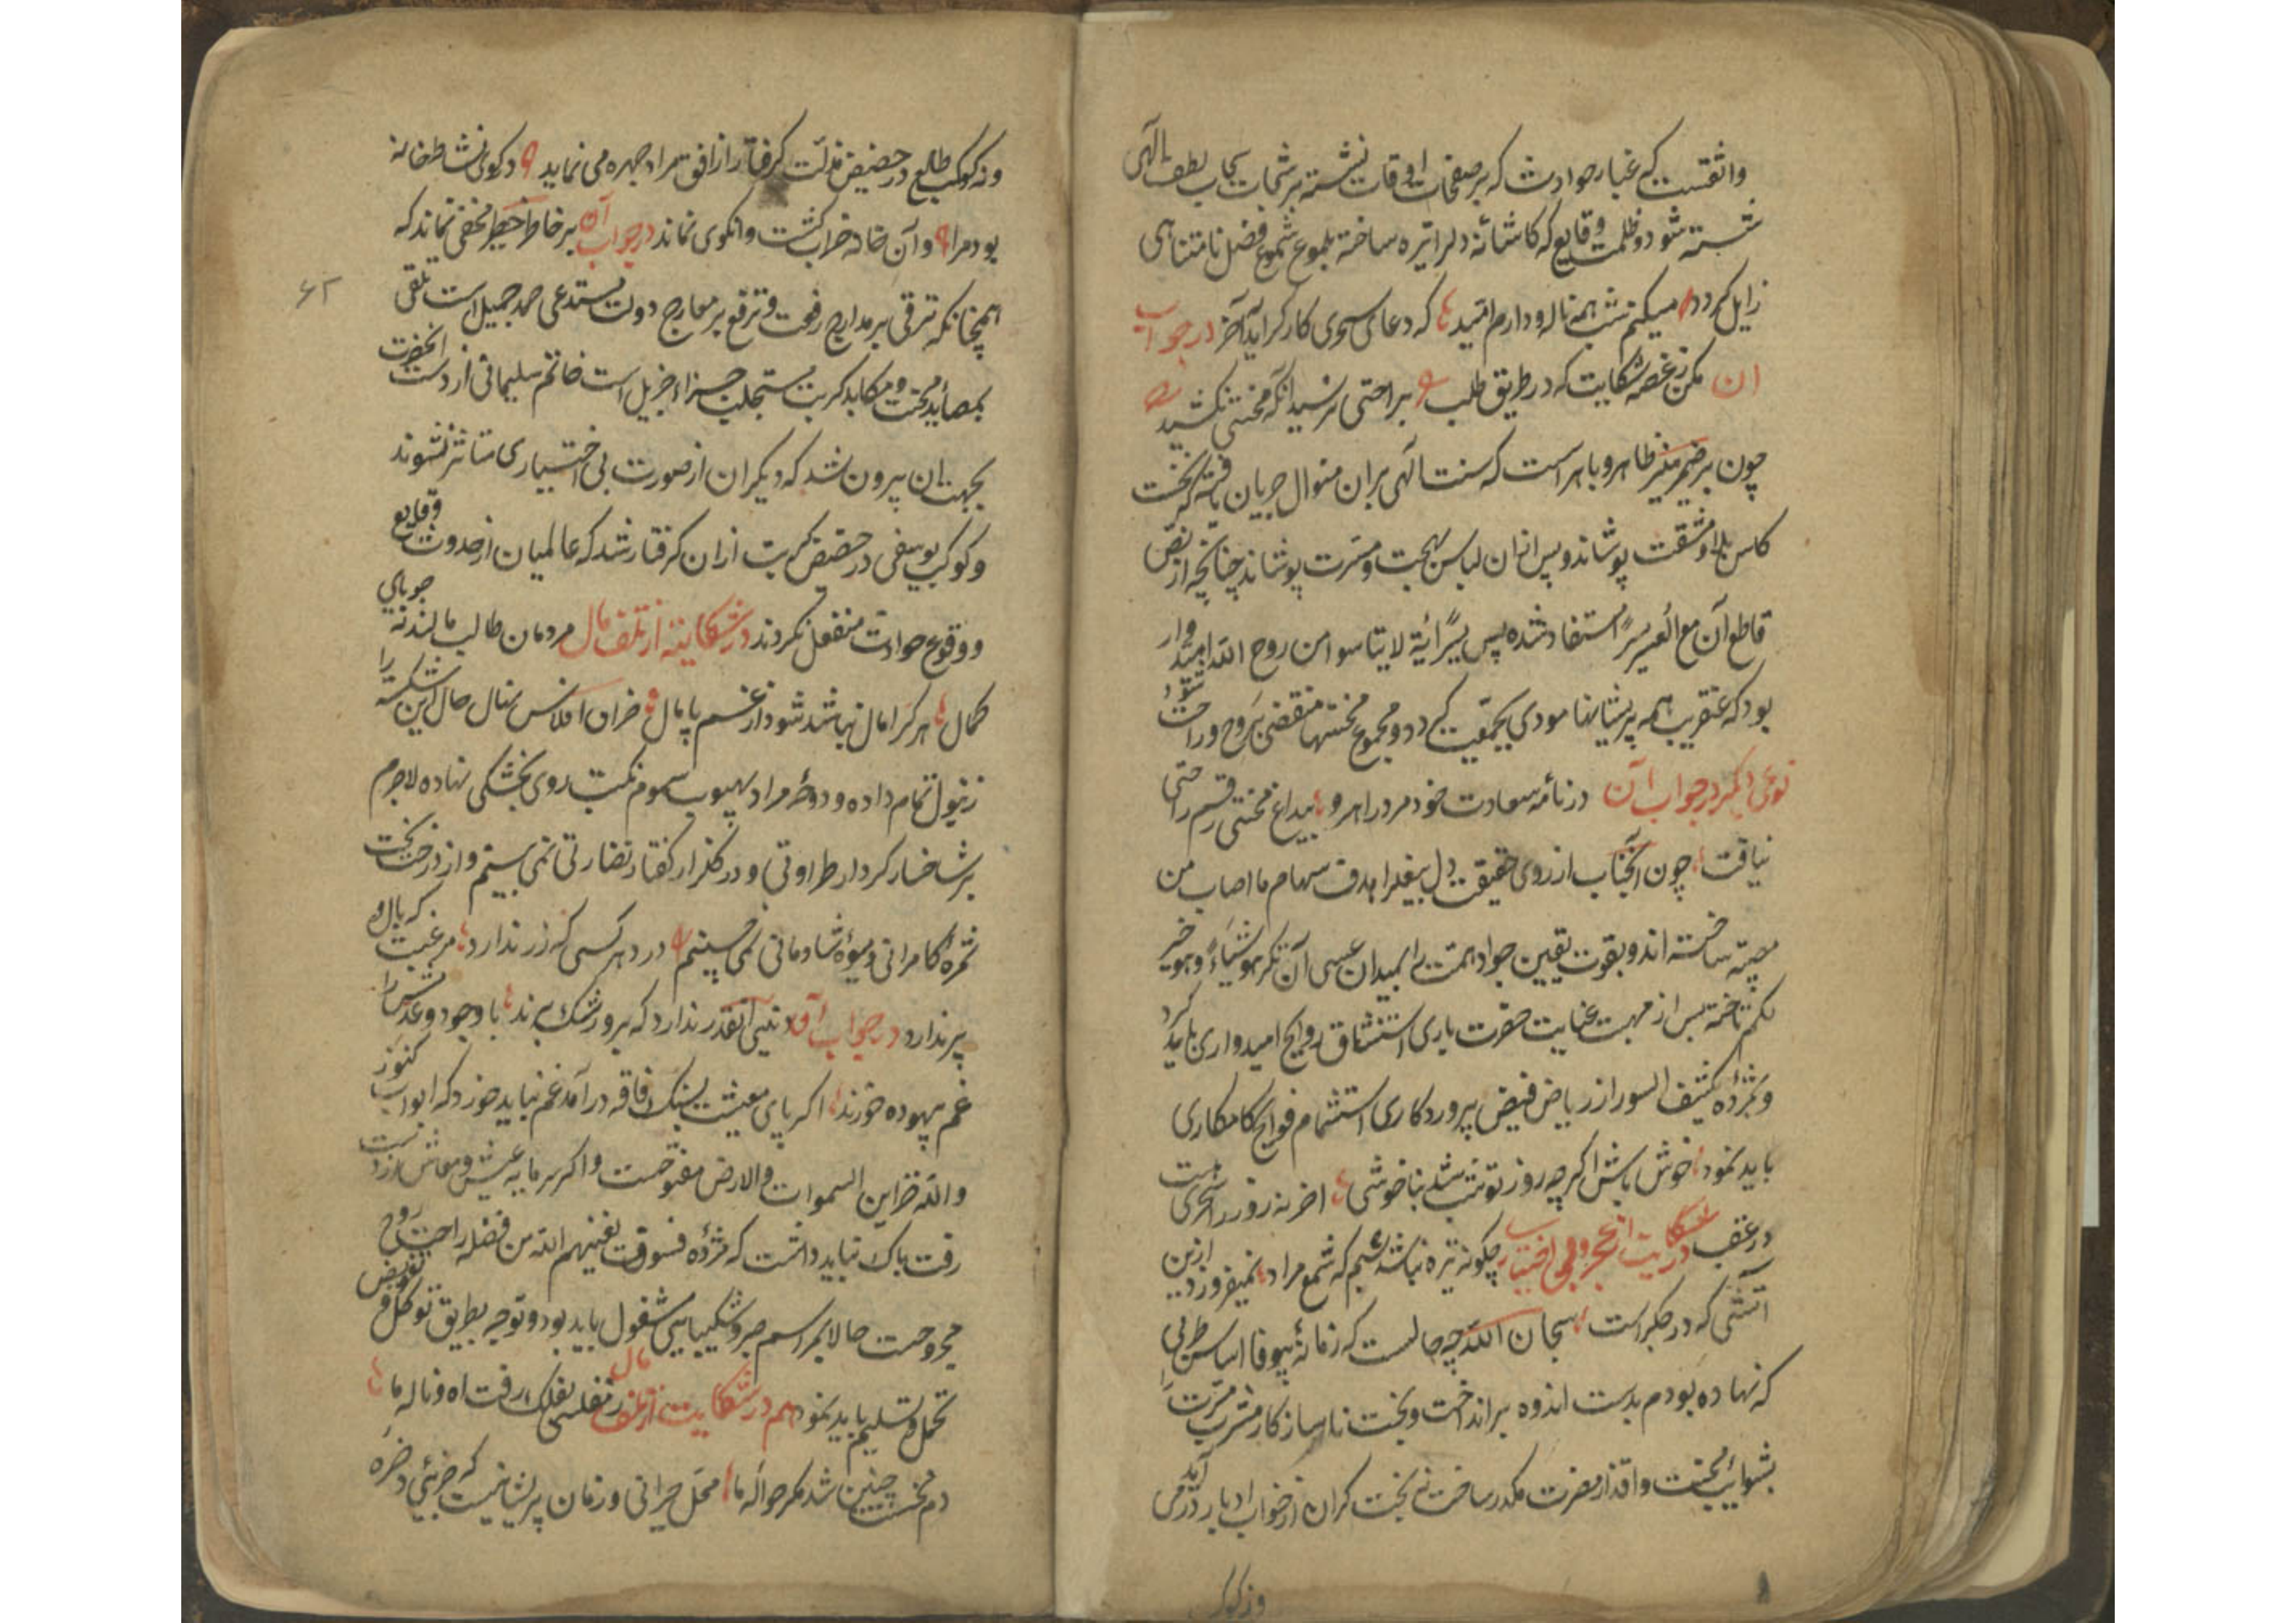 واثقست که غبار حوادث که بر صفحات اوقات نشسته برشحات سحاب لطف الهی
شسته شود و ظلمت وقایع که کاشانهٔ دلرا تیره ساخته بلموع شموع فضل نامتناهی
زایل کردد میکنم شب همه ناله و دارم امید که دعای سحری کارکر آید آخر در جواب
ان مکن ز غصه شکایت که در طریق طلب براحتی نرسید آنکه محنتی نکشید
چون بر ضمیر منیر ظاهر و باهر است که سنت الهی بران منوال جریان یافته که نخست
کاس بلا و مشقت نوشاند و پس ازان لباس بهجت و مسرت پوشاند چنانچه از نص
قاطع آن مع العسر یسرا مستفاد شده پس بسرّ آیة لا یتأسوا من روح الله امیدوار
بود که عنقریب همه پریشانیها مودی بجمعیت کردد و مجموع محنتها منقضی بروح و راحت شود
نوعی دیگر در جواب آن در نامهٔ سعادت خود مرد راهرو بیداغ محنتی رقم راحتی
نیافت چون آنجناب از روی حقیقت دل بیغلرا هدف سهام ما اصاب من
مصیبة ساخته اند و بقوت یقین جواد همت را بمیدان عسی آن تکرهوا شیاءً و هو خیر
لکم تاخته پس از مهب عنایت حضرت باری استنشاق روایح امیدواری باید کرد
و بمژدهٔ کشف السور از ریاض فیض پروردکاری استشمام فوایح کامکاری
باید نمود خوش باش اکرچه روز تو شب شد بناخوشی اخر نه روز را سحری هست
در عقب در شکایت از عجز و بی اختیاری چکونه تیره نباشد شبم که شمع مراد نمیفروزد ازین
آتشی که در جکر است سبحان الله چه حالست که زمانهٔ بیوفا اساس طربی
که نهاده بودم بدست اندوه برانداخت و بخت ناساز کار مشرب مسرت را
بشوایب محنت و اقذار مضرت مکدر ساخت نه بخت کران از خواب ادبار در می آمد
و نه کوکب
و نه کوکب طالع در حضیض مذلت کرفتار از افق مراد چهره می نماید در کوی نشاط خانهٔ
بود مرا وآن خانه خراب کشت وانکوی نماند در جواب آن بر خاطر خطیر مخفی نماند که
همچنانکه ترقی بر مدارج رفعت و ترفع بر معارج دولت مستدعی حمد جمیل است تلقی
بمصاید محنت و مکاید کربت مستجلب جزاء جزیل است خاتم سلیمانی از دست انحضرت
بجهت ان بیرون شد که دیکران از صورت بی اختیاری متاثر نشوند
و کوکب یوسفی در حضیض کربت ازان کرفتار شد که عالمیان از حدوث وقایع
و وقوع حوادث منفعل نکردند در شکایت از تلف مال مردمان طالب مالند نه جویای
کمال هر کرا مال نباشد شود از غم پامال خزان افلاس نهال حال این شکسته را
زیول تمام داده و دوحهٔ مراد بهبوب سموم نکبت روی بخشکی نهاده لاجرم
بر شاخسار کردار طراوتی و در کلزار کفتار نضارتی نمی بینم و از درخت بخت
ثمرهٔ کامرانی و میوهٔ شادمانی نمی چینم در دهر کسی که زر ندارد مرغیست که بال و
پر ندارد در جواب آن دنیی آنقدر ندارد که برو رشک برند با وجود و عدمش را
غم بیهوده خورند اکر پای معیشت بسنک فاقه در آمد غم نباید خورد که ابواب کنوز
والله خزاین السموات والارض مفتوحست و اکر سرمایه عیش و معاش از دست
رفت باک نباید داشت که مژده فسوف یغنیهم الله من فضله راحت روح
مجروحست حالا بمراسم صبر و شکیبایی مشغول باید بود و توجه بطریق توکل و تفویض
تحمل و تسلیم باید نمود هم در شکایت از تلف مال ز مفلسی بفلک رفت اه و ناله ما
دم نخست چنین شد مکر حواله ما محل حیرانی و زمان پریشانیست که جزئی ذخیره
۶۲